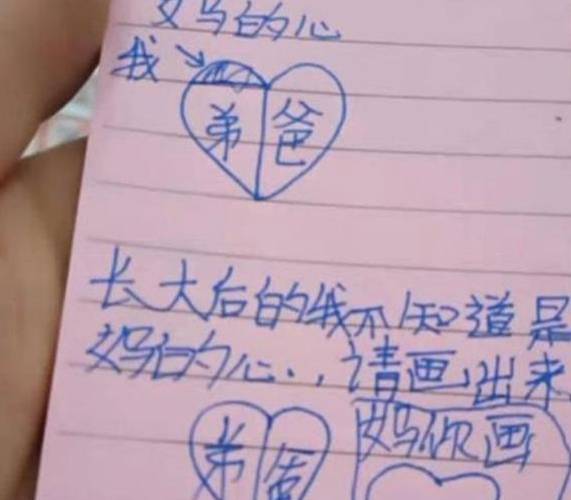 妈妈的心
我
弟 爸
长大后的我不知道是
妈妈的心..,请画出来
妈你画
弟 爸